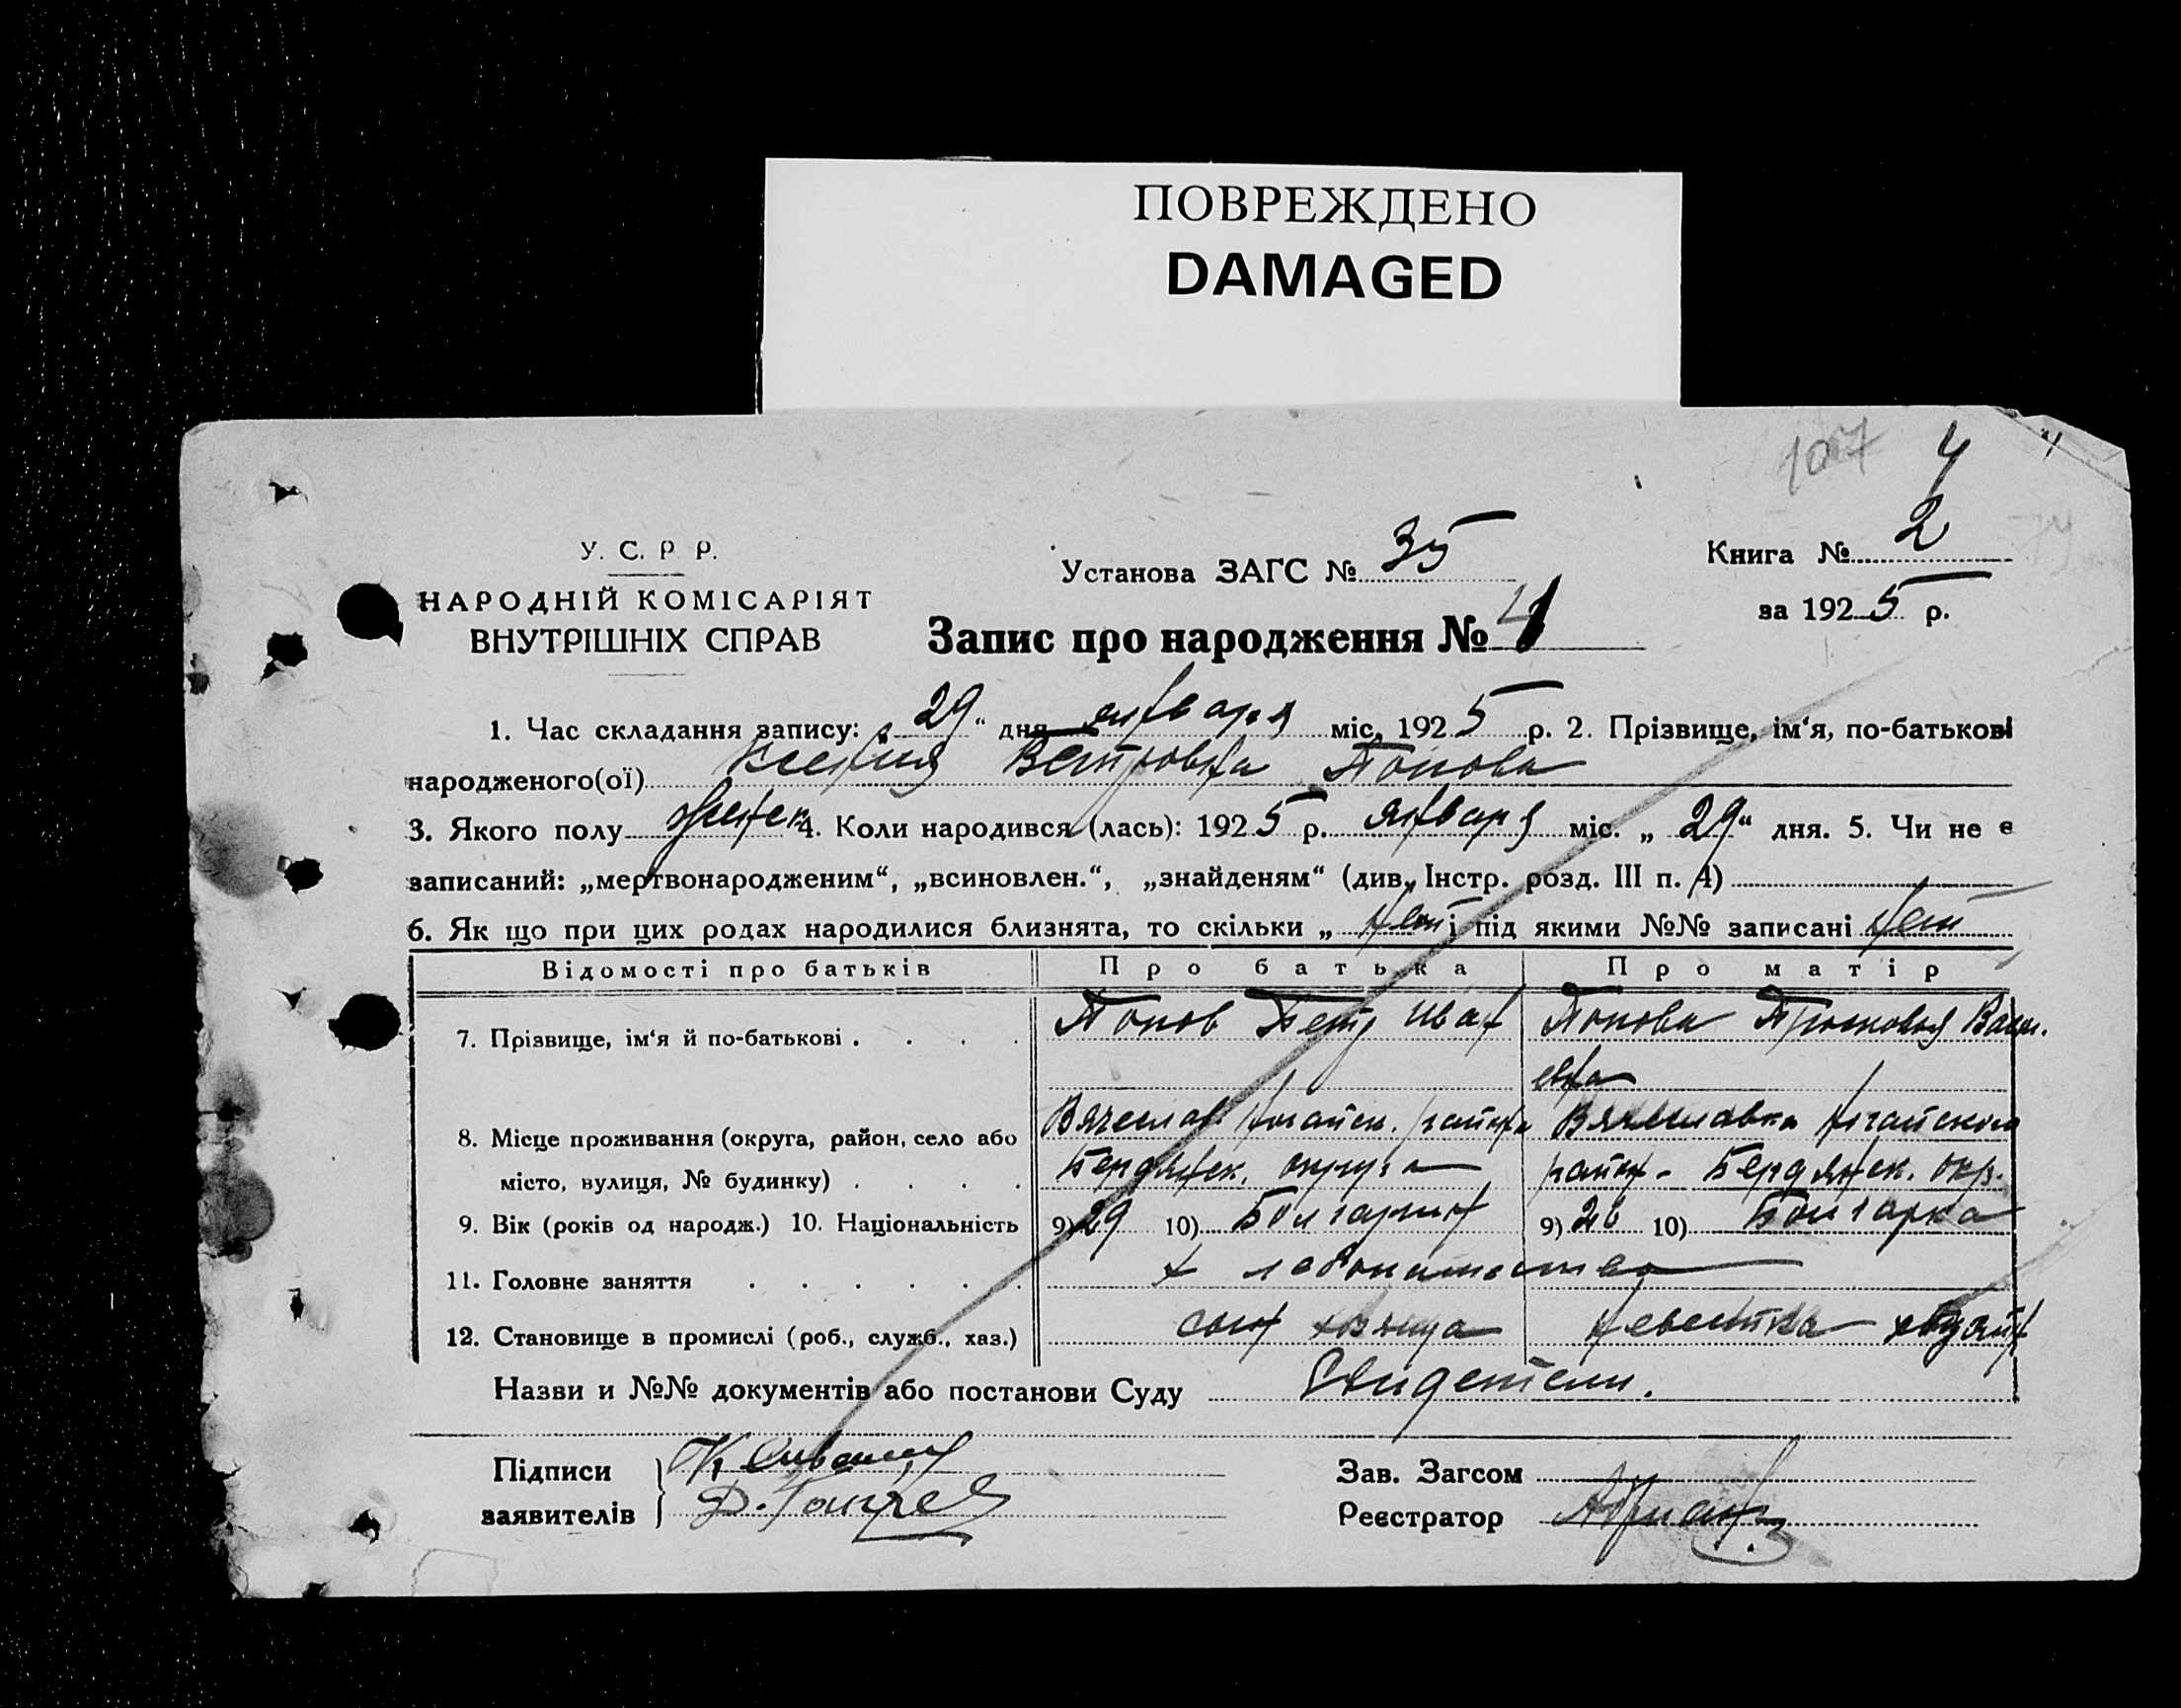 ПОВРЕЖДЕНО
DAMAGED
107 4 4
У. С. Р Р.
НАРОДНІЙ КОМІСАРІЯТ
ВНУТРІШНІХ СПРАВ
Установа ЗАГС № 35
Книга № 2
за 1925 р.
Запис про народження № 4
1. Час складання запису: „ 29 “ дня января міс. 1925 р. 2. Прізвище, ім‘я, по-батькові
народженого(ої) Ксения Петровна Попова
3. Якого полу женск 4. Коли народився (лась): 1925 р. января міс. „ 29 “ дня. 5. Чи не є
записаний: „мертвонародженим“, „всиновлен.“, „знайденям“ (див. Інстр. розд. III п. 4)
6. Як що при цих родах народилися близнята, то скільки „ нет і під якими №№ записані нет
Відомості про батьків Про батька Про матір
7. Прізвище, ім‘я й по-батькові . . . . Попов Петр Иван Попова Просковья Васил.
евна
8. Місце проживання (округа, район, село або Вячеслав. Ногайск. района Вячеславка Ногайского
місто, вулиця, № будинку) . . . . Бердянск. округа район. Бердянск. окр.
9. Вік (років од народж.) 10. Національність 9) 29 10) Болгарин 9) 10) Болгарка
11. Головне заняття . . . . . . хлебопашество
12. Становище в промислі (роб., служб., хаз.) сын хозяина невестка хозяин
Назви и №№ документів або постанови Суду Свидетели.
Підписи
заявителів
Зав. Загсом
Реєстратор